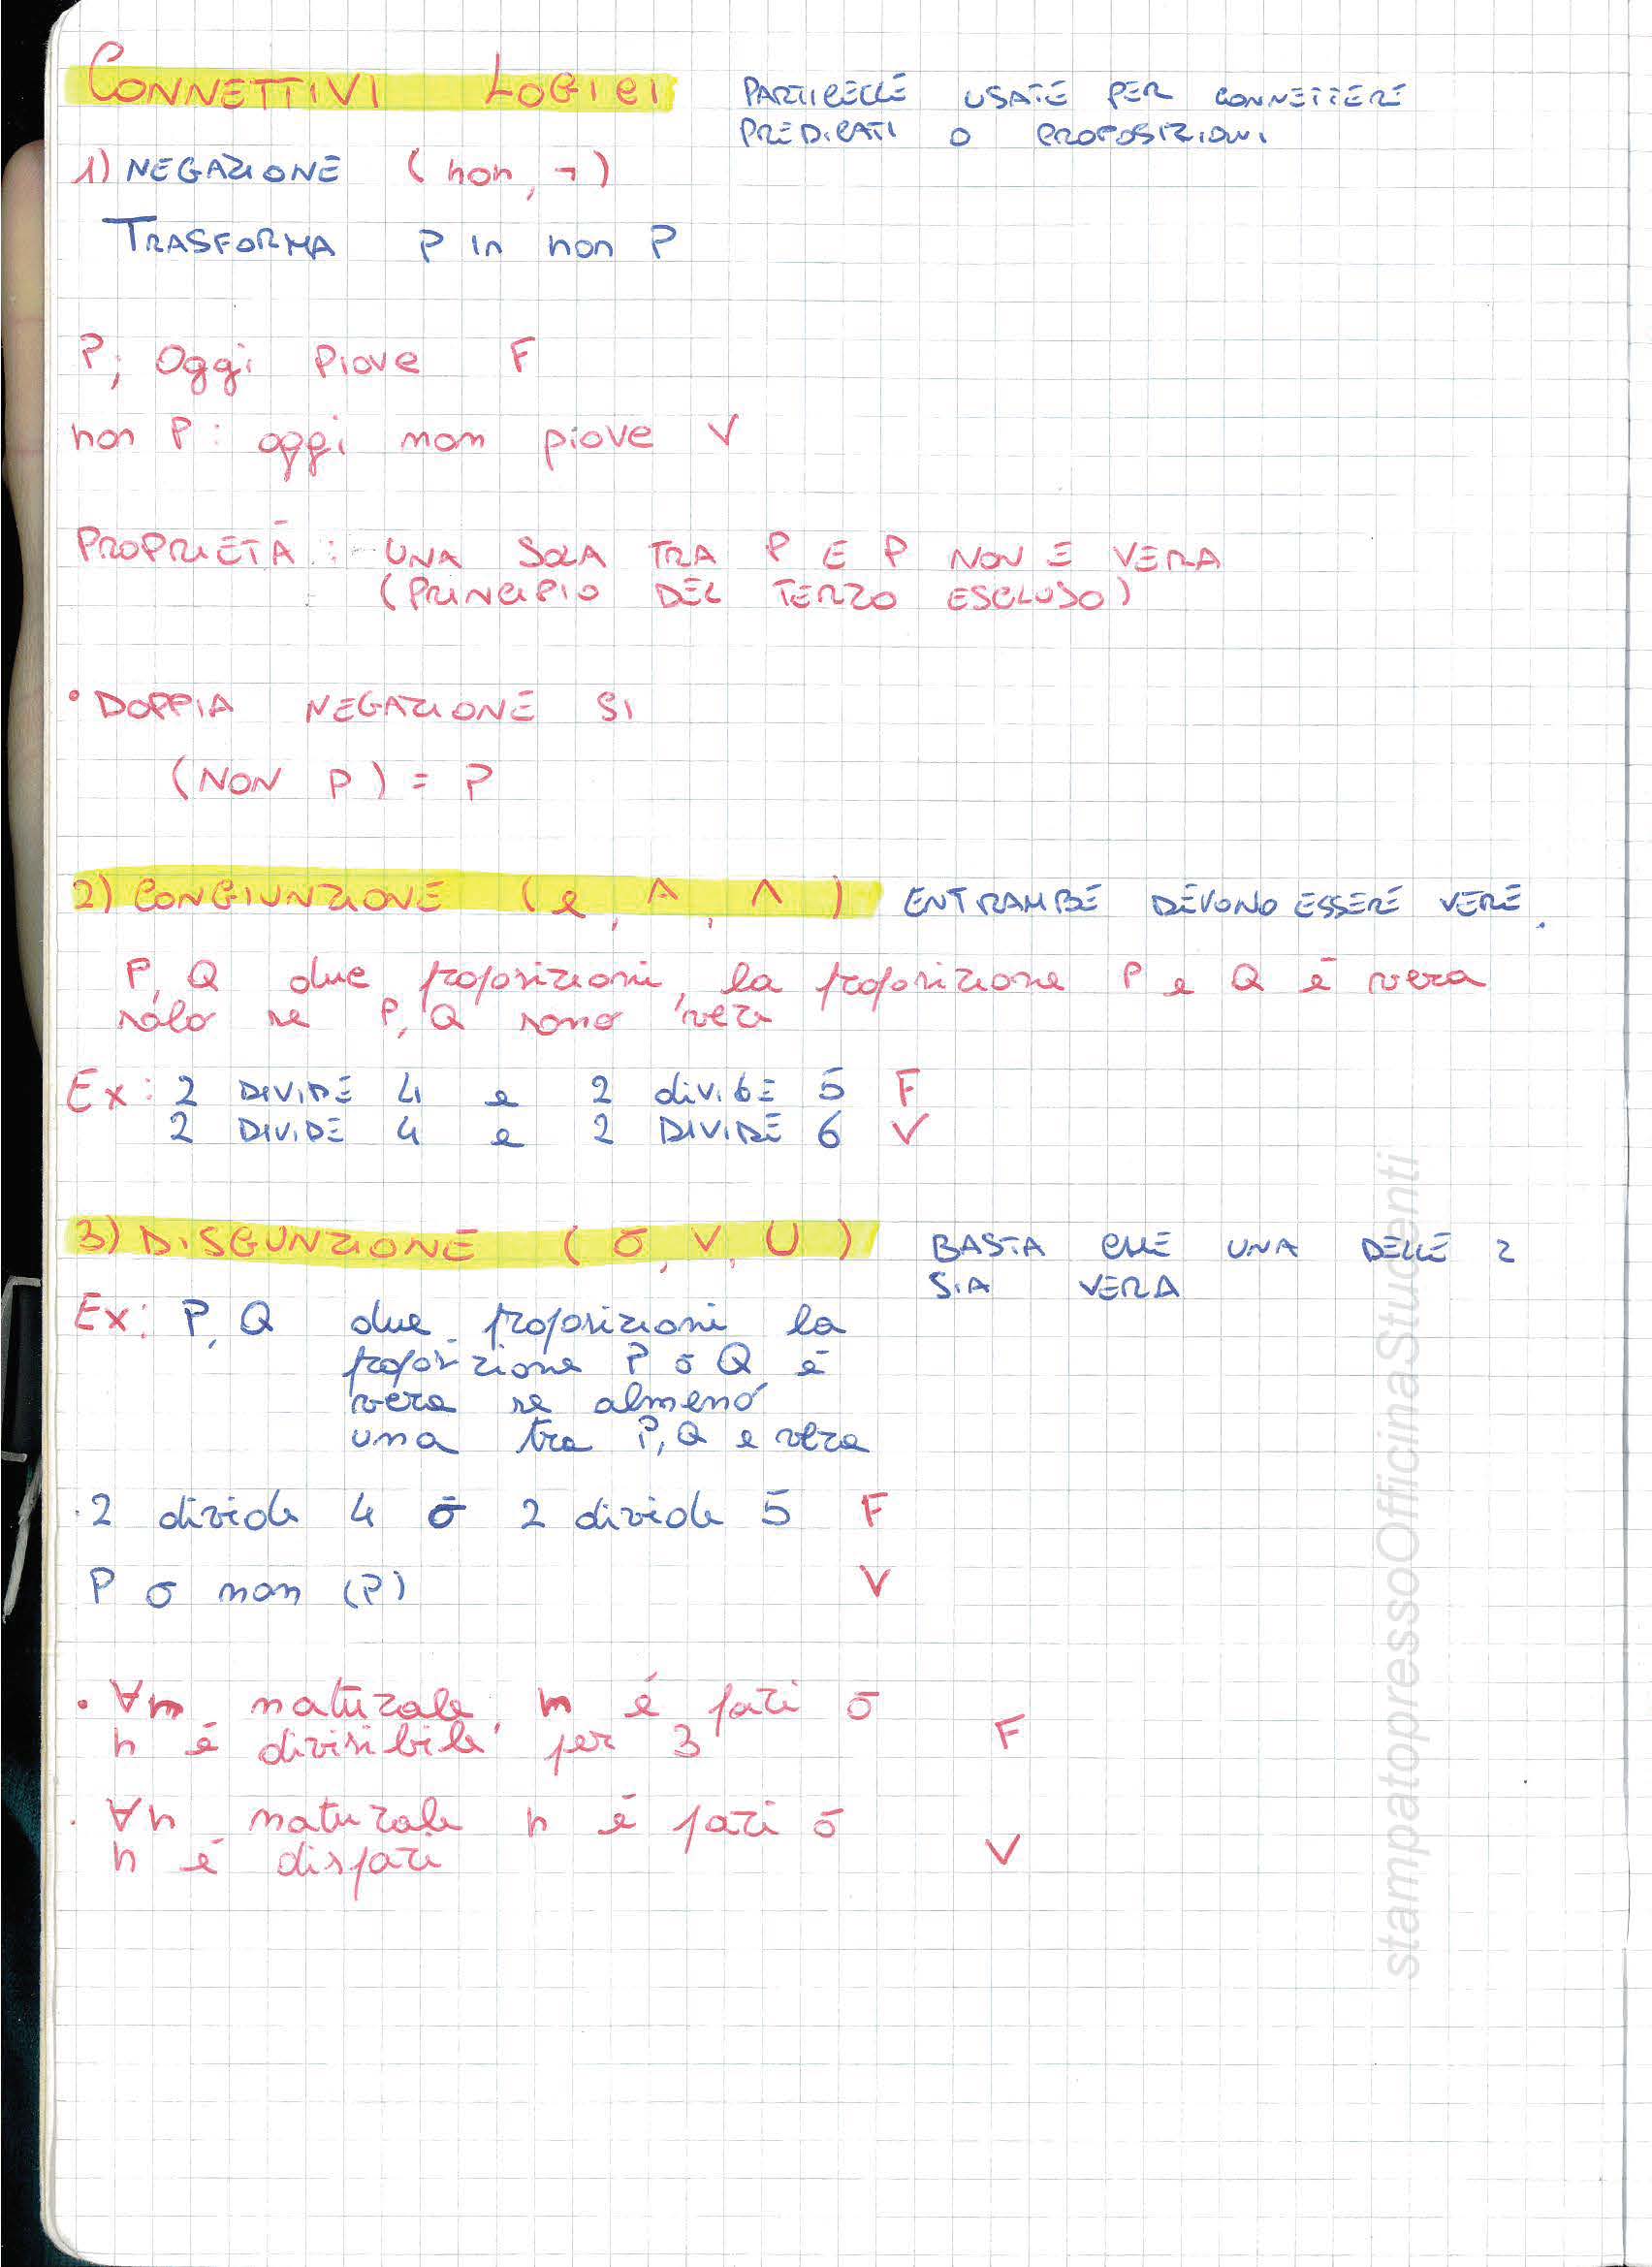 CONNETTIVI LOGICI PARTICELLE USATE PER CONNETTERE
PREDICATI O PROPOSIZIONI
1) NEGAZIONE (non, ¬)
TRASFORMA P in non P
P; Oggi Piove F
non P: oggi non piove V
PROPRIETÀ: UNA SOLA TRA P E P NON È VERA
(PRINCIPIO DEL TERZO ESCLUSO)
• DOPPIA NEGAZIONE SI
(NON P) = P
2) CONGIUNZIONE (e, ^, ∧) ENTRAMBE DEVONO ESSERE VERE.
P, Q due proposizioni, la proposizione P e Q è vera
solo se P, Q sono vere
Ex: 2 DIVIDE 4 e 2 divide 5 F
2 DIVIDE 4 e 2 DIVIDE 6 V
3) DISGUNZIONE (ō, V, U) BASTA CHE UNA DELLE 2
SIA VERA
Ex: P, Q due proposizioni la
proposizione P ō Q è
vera se almeno
una tra P, Q e vera
. 2 divide 4 ō 2 divide 5 F
P ō non (P) V
• ∀n naturale, n é pari ō
n é divisibile per 3 F
. ∀n naturale n é pari ō
n é dispari V
stampatopressoOfficinaStudenti